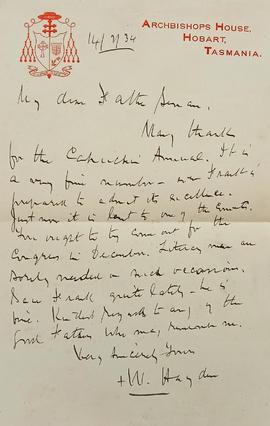 ARCHBISHOPS HOUSE,
HOBART,
TASMANIA.
14/2/34
My dear Father Senan,
Many thanks
for the Capuchin Annual. It is
a very fine number – even Frank is
prepared to admit its excellence.
Just now it is lent to one of the
You ought to try come out for the
Congress in December. Literary men are
sorely needed on such occasions.
Saw Frank quite lately – he is
fine. Kindest regards to any of the
good Fathers who may remember me.
Very Sincerely Yours
+W. Hayden